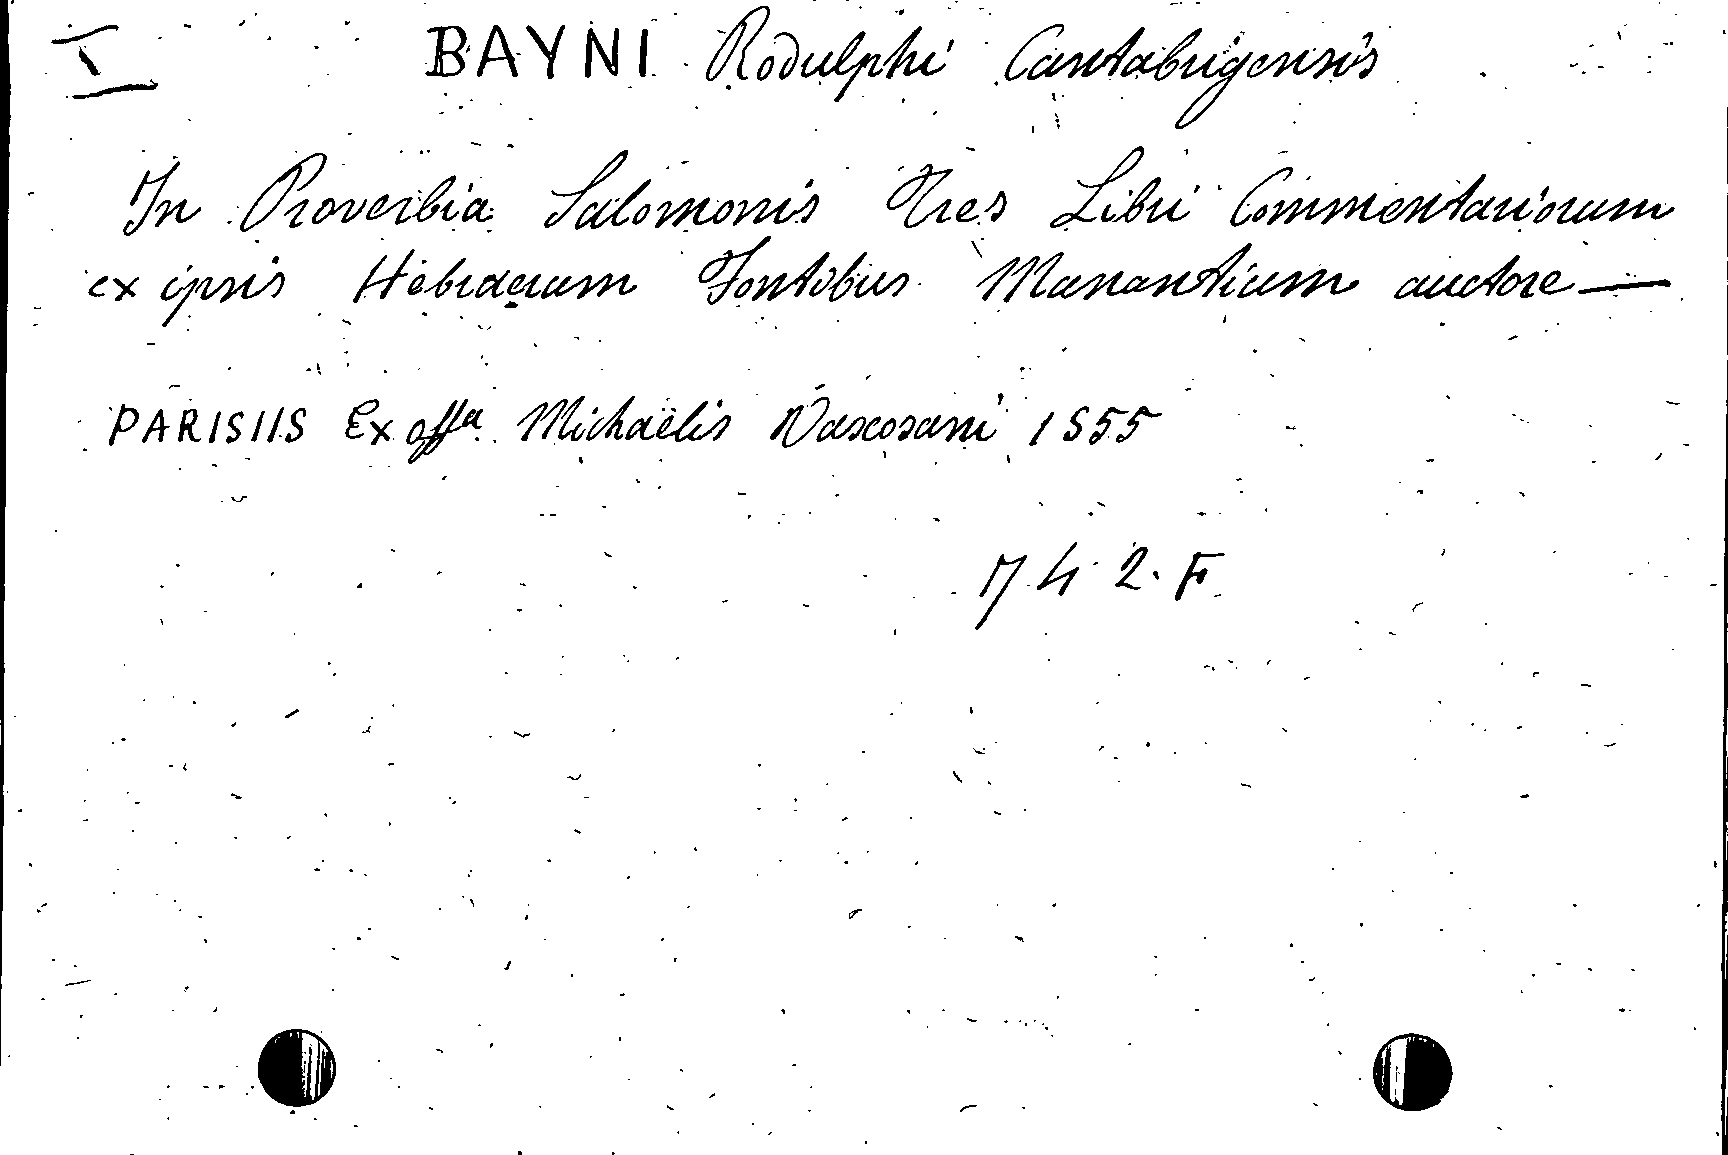 I BAYNI Rodulphi Cantabrigensis
In Proverbia Salomonis Tres Libri Commentariorum
ex ipsis Hebraerum Fontibus Manantium auctore —
PARISIIS Ex offa Michaëlis Vascosani 1555
742.F